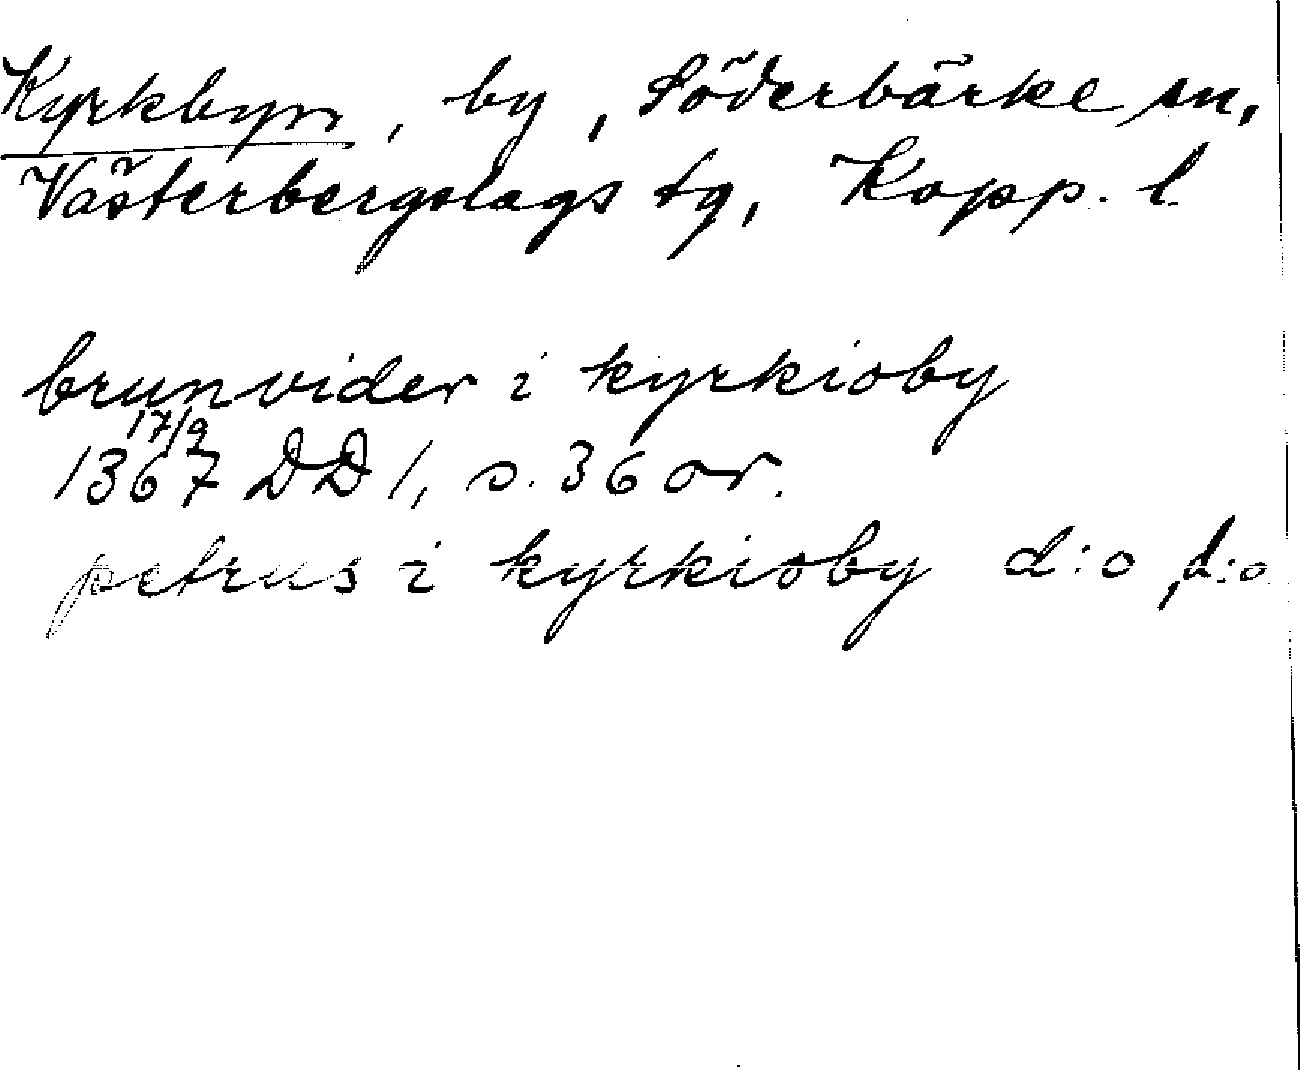 Kyrkbyn, by, Söderbärke sn,
Västerbergslags tg, Kopp. l.
brunvider i kyrkioby
17/9
1367 DD 1, s. 36 or.
petrus i kyrkioby d:o, d:o